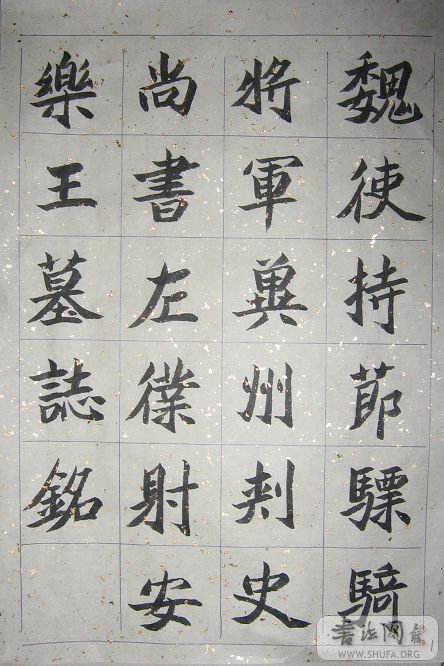 魏使持莭驃騎
將軍兾州刾史
尚書左僕射安
樂王墓誌銘
書法网
WWW.SHUFA.ORG